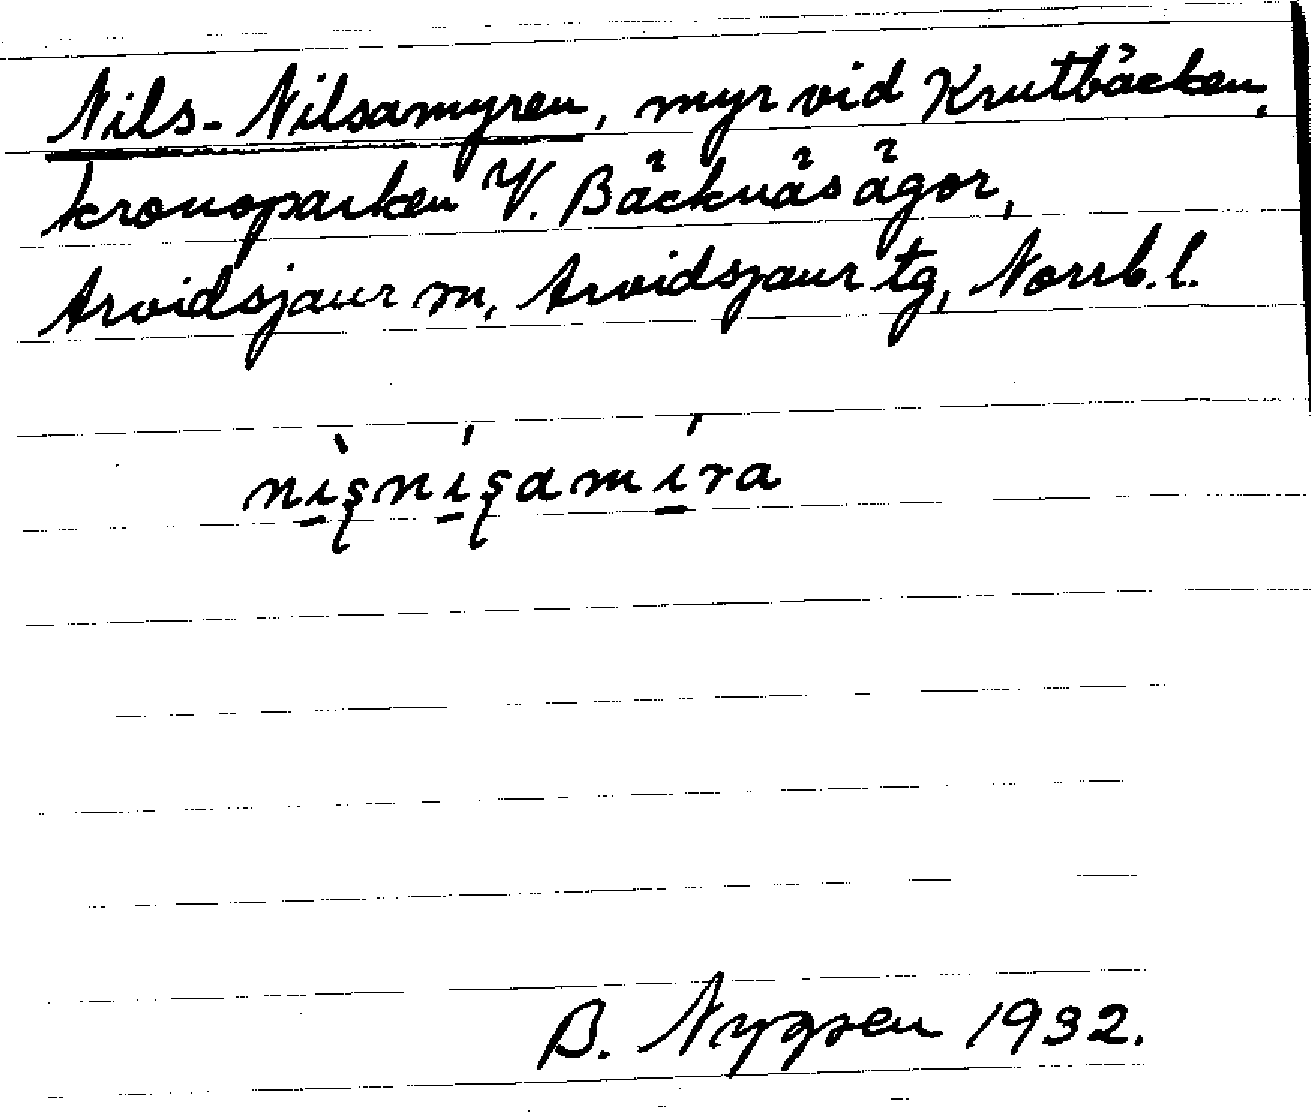 Nils-Nilsamyren, myr vid Krutbäcken,
kronoparken V. Bäcknäs ägor,
Arvidsjaur sn, Arvidsjaur tg, Norrb. l.
nı̀ʂnı́ʂamı́ra
B. Nygren 1932.